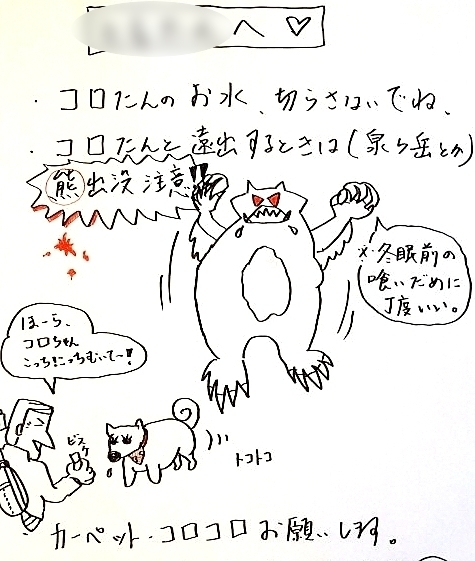 へ♡
・コロたんのお水、切らさないでね、
・コロたんと遠出するときは(泉ヶ岳とか)
熊出没注意!!
※冬眠前の
喰いだめに
丁度いい。
ほーら、
コロちゃん
こっち!こっちむいてー!!
ビスケ
トコトコ
・カーペット・コロコロお願いします。